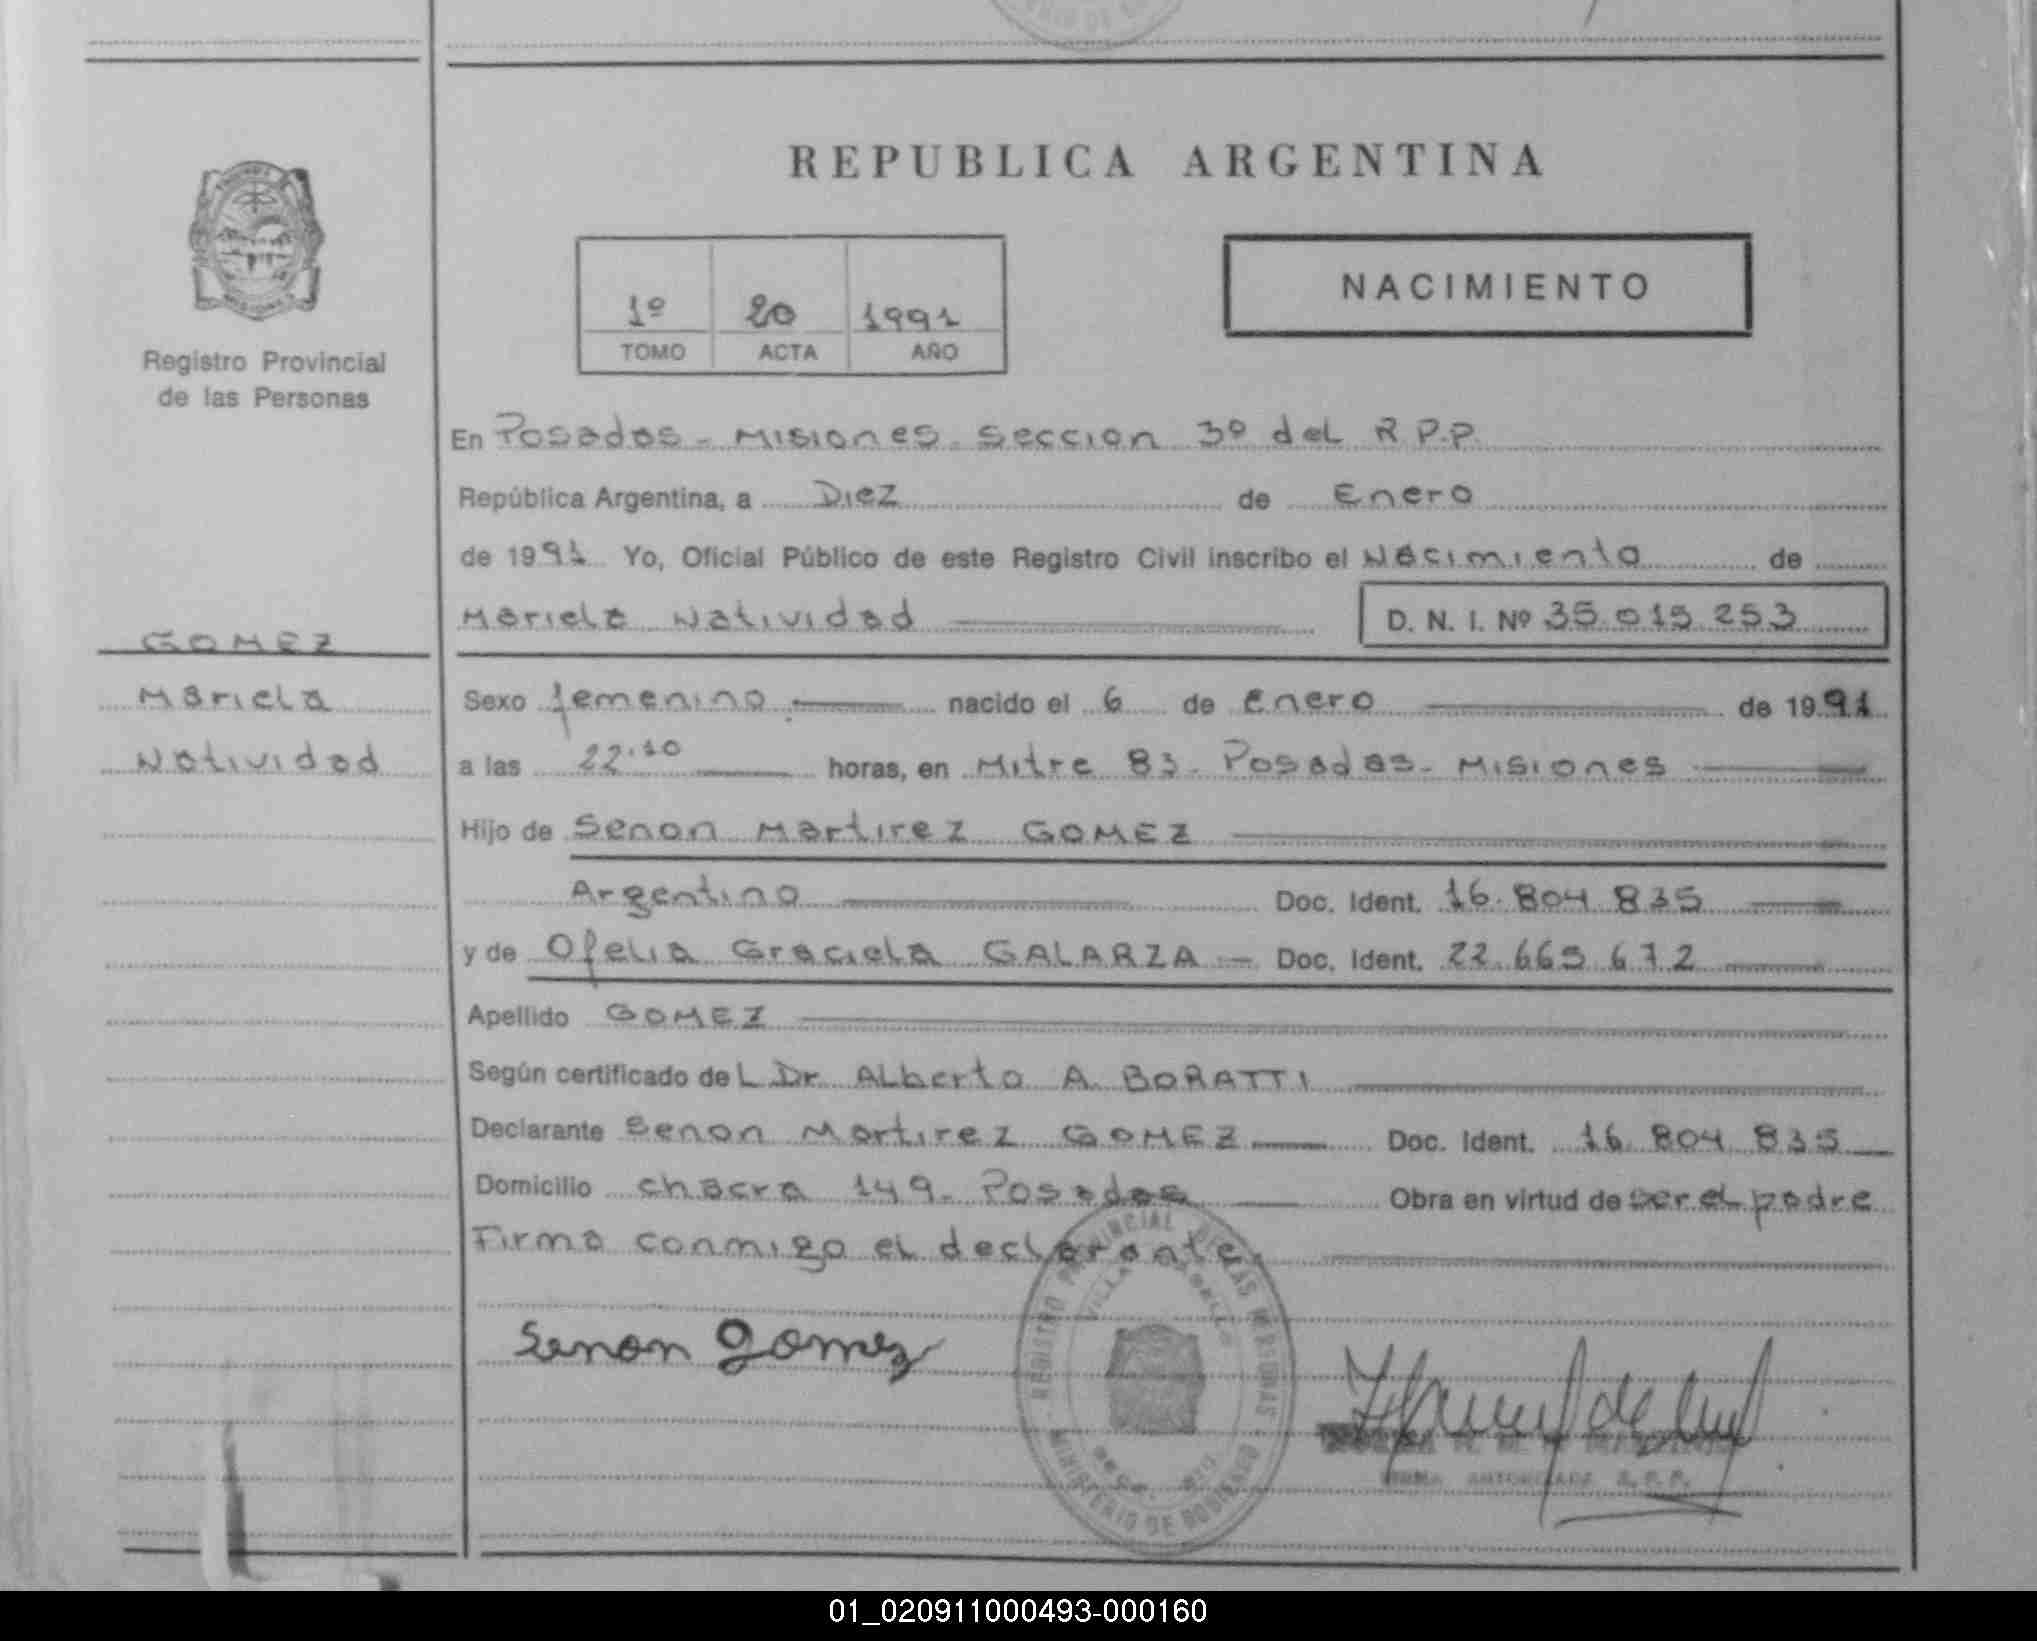 REPUBLICA ARGENTINA
1º 20 1991
TOMO ACTA AÑO
NACIMIENTO
Registro Provincial
de las Personas
En Posadas - Misiones - Seccion 3º del R P.P.
República Argentina, a Diez de Enero
de 1991 Yo, Oficial Público de este Registro Civil inscribo el Nacimiento de
Mariela Natividad D. N. I. Nº 35.015.253
GOMEZ
Mariela
Natividad
Sexo femenino nacido el 6 de Enero de 1991
a las 22:10 horas, en Mitre 83 - Posadas - Misiones
Hijo de Senon Martirez GOMEZ
Argentino Doc. Ident. 16.804.835
y de Ofelia Graciela GALARZA - Doc. Ident. 22.665.672
Apellido GOMEZ
Según certificado de L Dr Alberto A. BORATTI
Declarante Senon Martirez GOMEZ Doc. Ident. 16.804.835
Domicilio chacra 149 - Posadas Obra en virtud de ser el padre
Firma conmigo el declarante.
Senon Gomez
REGISTRO PROVINCIAL DE LAS PERSONAS
VILLA CABELLO
MINISTERIO DE GOBIERNO
FIRMA AUTORIZADA R. P. P.
01_020911000493-000160